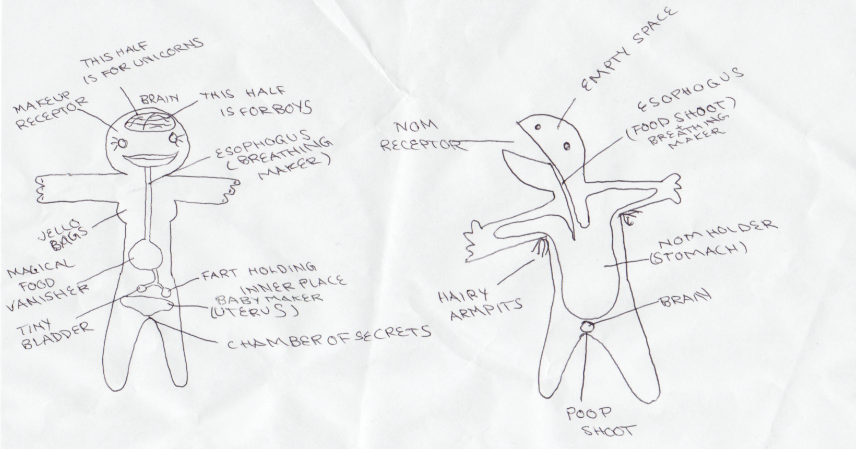 THIS HALF
IS FOR UNICORNS
MAKEUP
RECEPTOR
BRAIN
THIS HALF
IS FOR BOYS
ESOPHOGUS
(BREATHING
MAKER)
JELLO
BAGS
MAGICAL
FOOD
VANISHER
FART HOLDING
INNER PLACE
TINY
BLADDER
BABY MAKER
(UTERUS)
CHAMBER OF SECRETS
EMPTY SPACE
NOM
RECEPTOR
ESOPHOGUS
(FOOD SHOOT)
+
BREATHING
MAKER
NOM HOLDER
(STOMACH)
HAIRY
ARMPITS
BRAIN
POOP
SHOOT